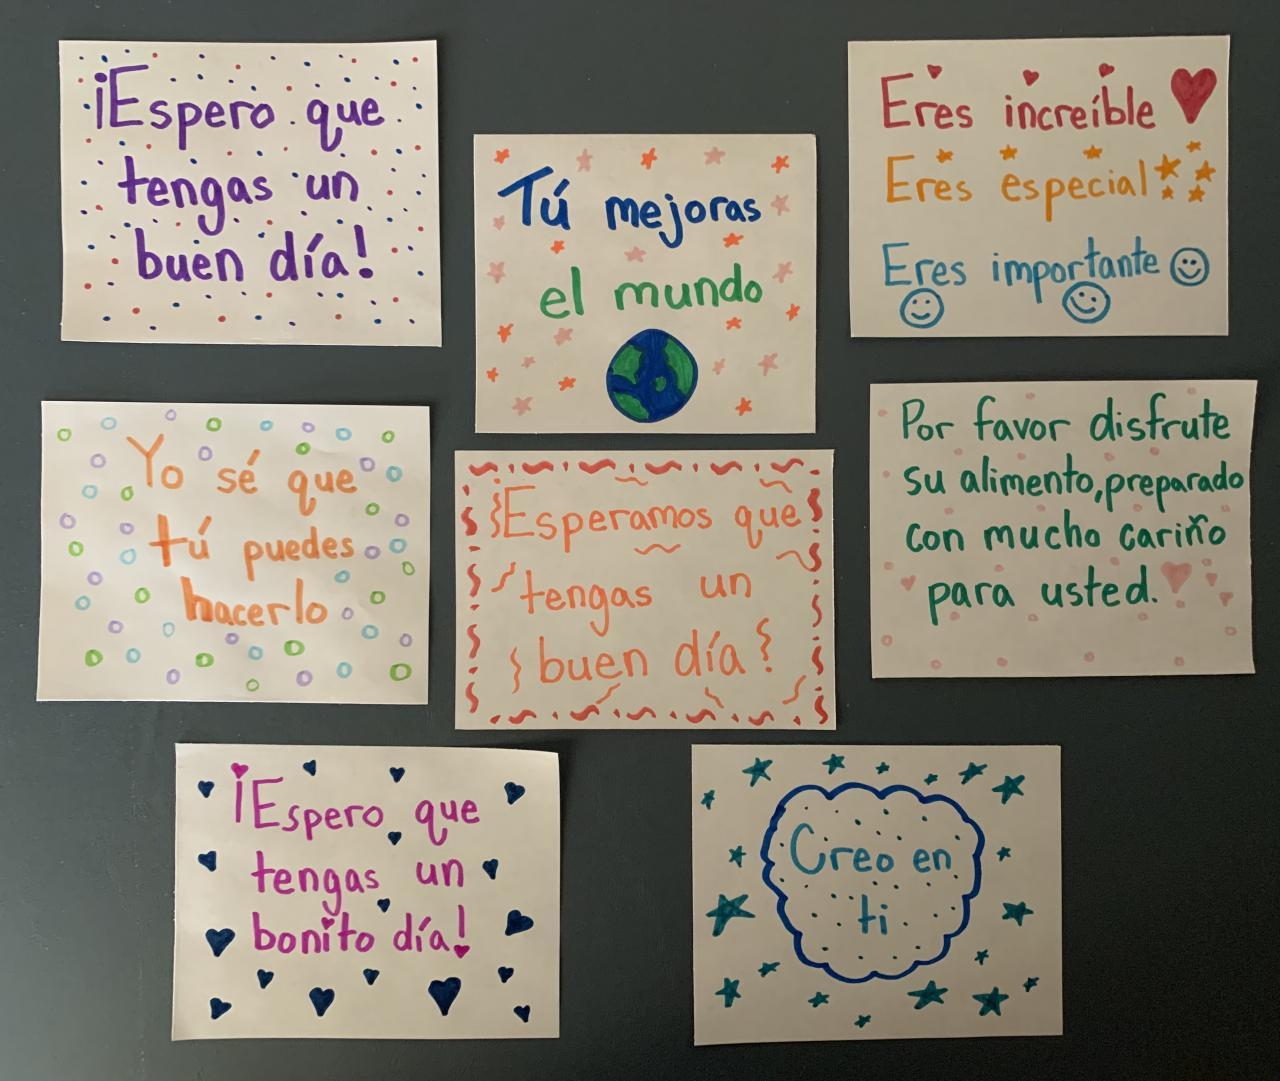 ¡Espero que
tengas un
buen día!
Tú mejoras
el mundo
Eres increíble
Eres especial
Eres importante
Yo sé que
tú puedes
hacerlo
¡Esperamos que
tengas un
buen día!
Por favor disfrute
su alimento, preparado
con mucho cariño
para usted.
¡Espero que
tengas un
bonito día!
Creo en
ti